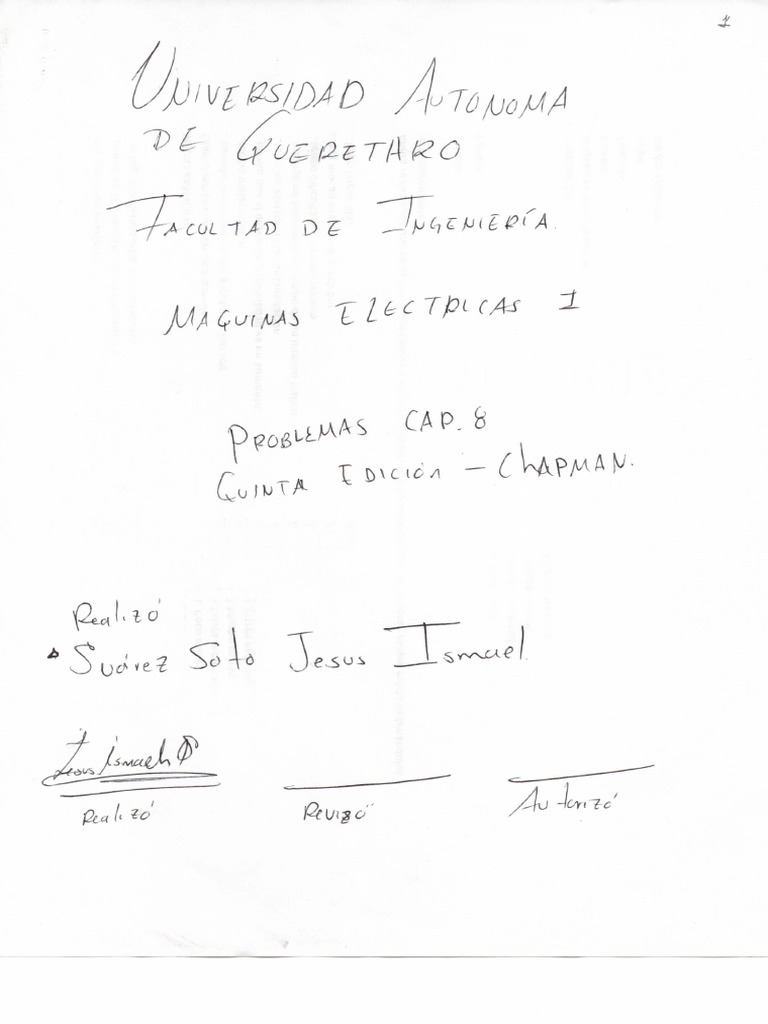 1
UNIVERSIDAD AUTONOMA
DE QUERETARO
FACULTAD DE INGENIERÍA.
MAQUINAS ELECTRICAS I
PROBLEMAS CAP. 8
QUINTA EDICIÓN - CHAPMAN.
Realizó
Suárez Soto Jesus Ismael.
Jesus Ismael
Realizó Revizó Autorizó